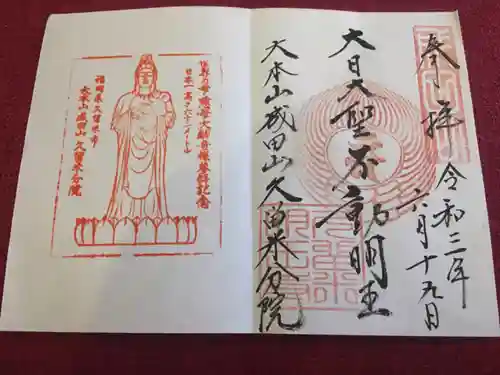 奉拝
令和三年
六月十九日
大日大聖不動明王
大本山成田山久留米分院
日本一高さ六十二メートル
福岡県久留米市
大本山成田山久留米分院